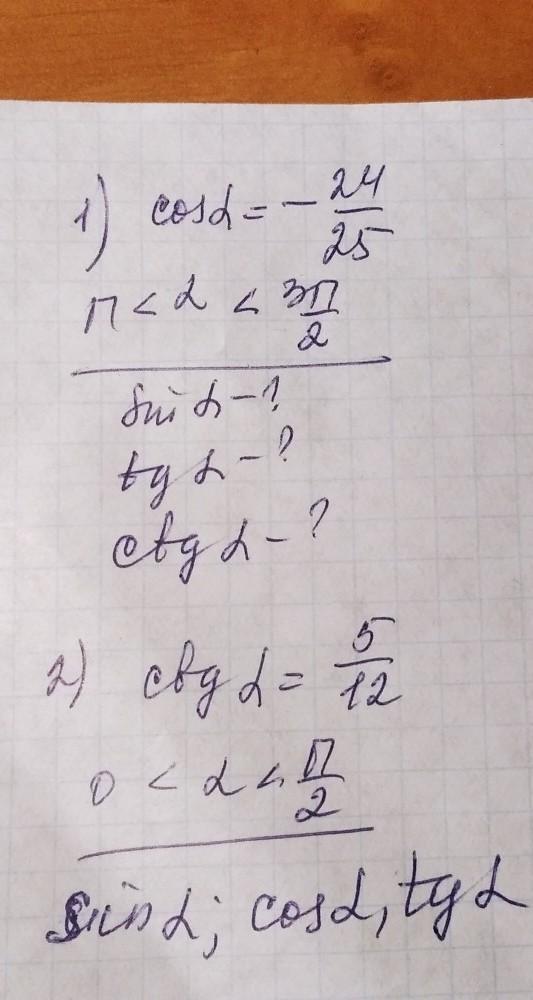 1) cos α = - 24/25
π < α < 3π/2
sin α - ?
tg α - ?
ctg α - ?
2) ctg α = 5/12
0 < α < π/2
sin α; cos α, tg α